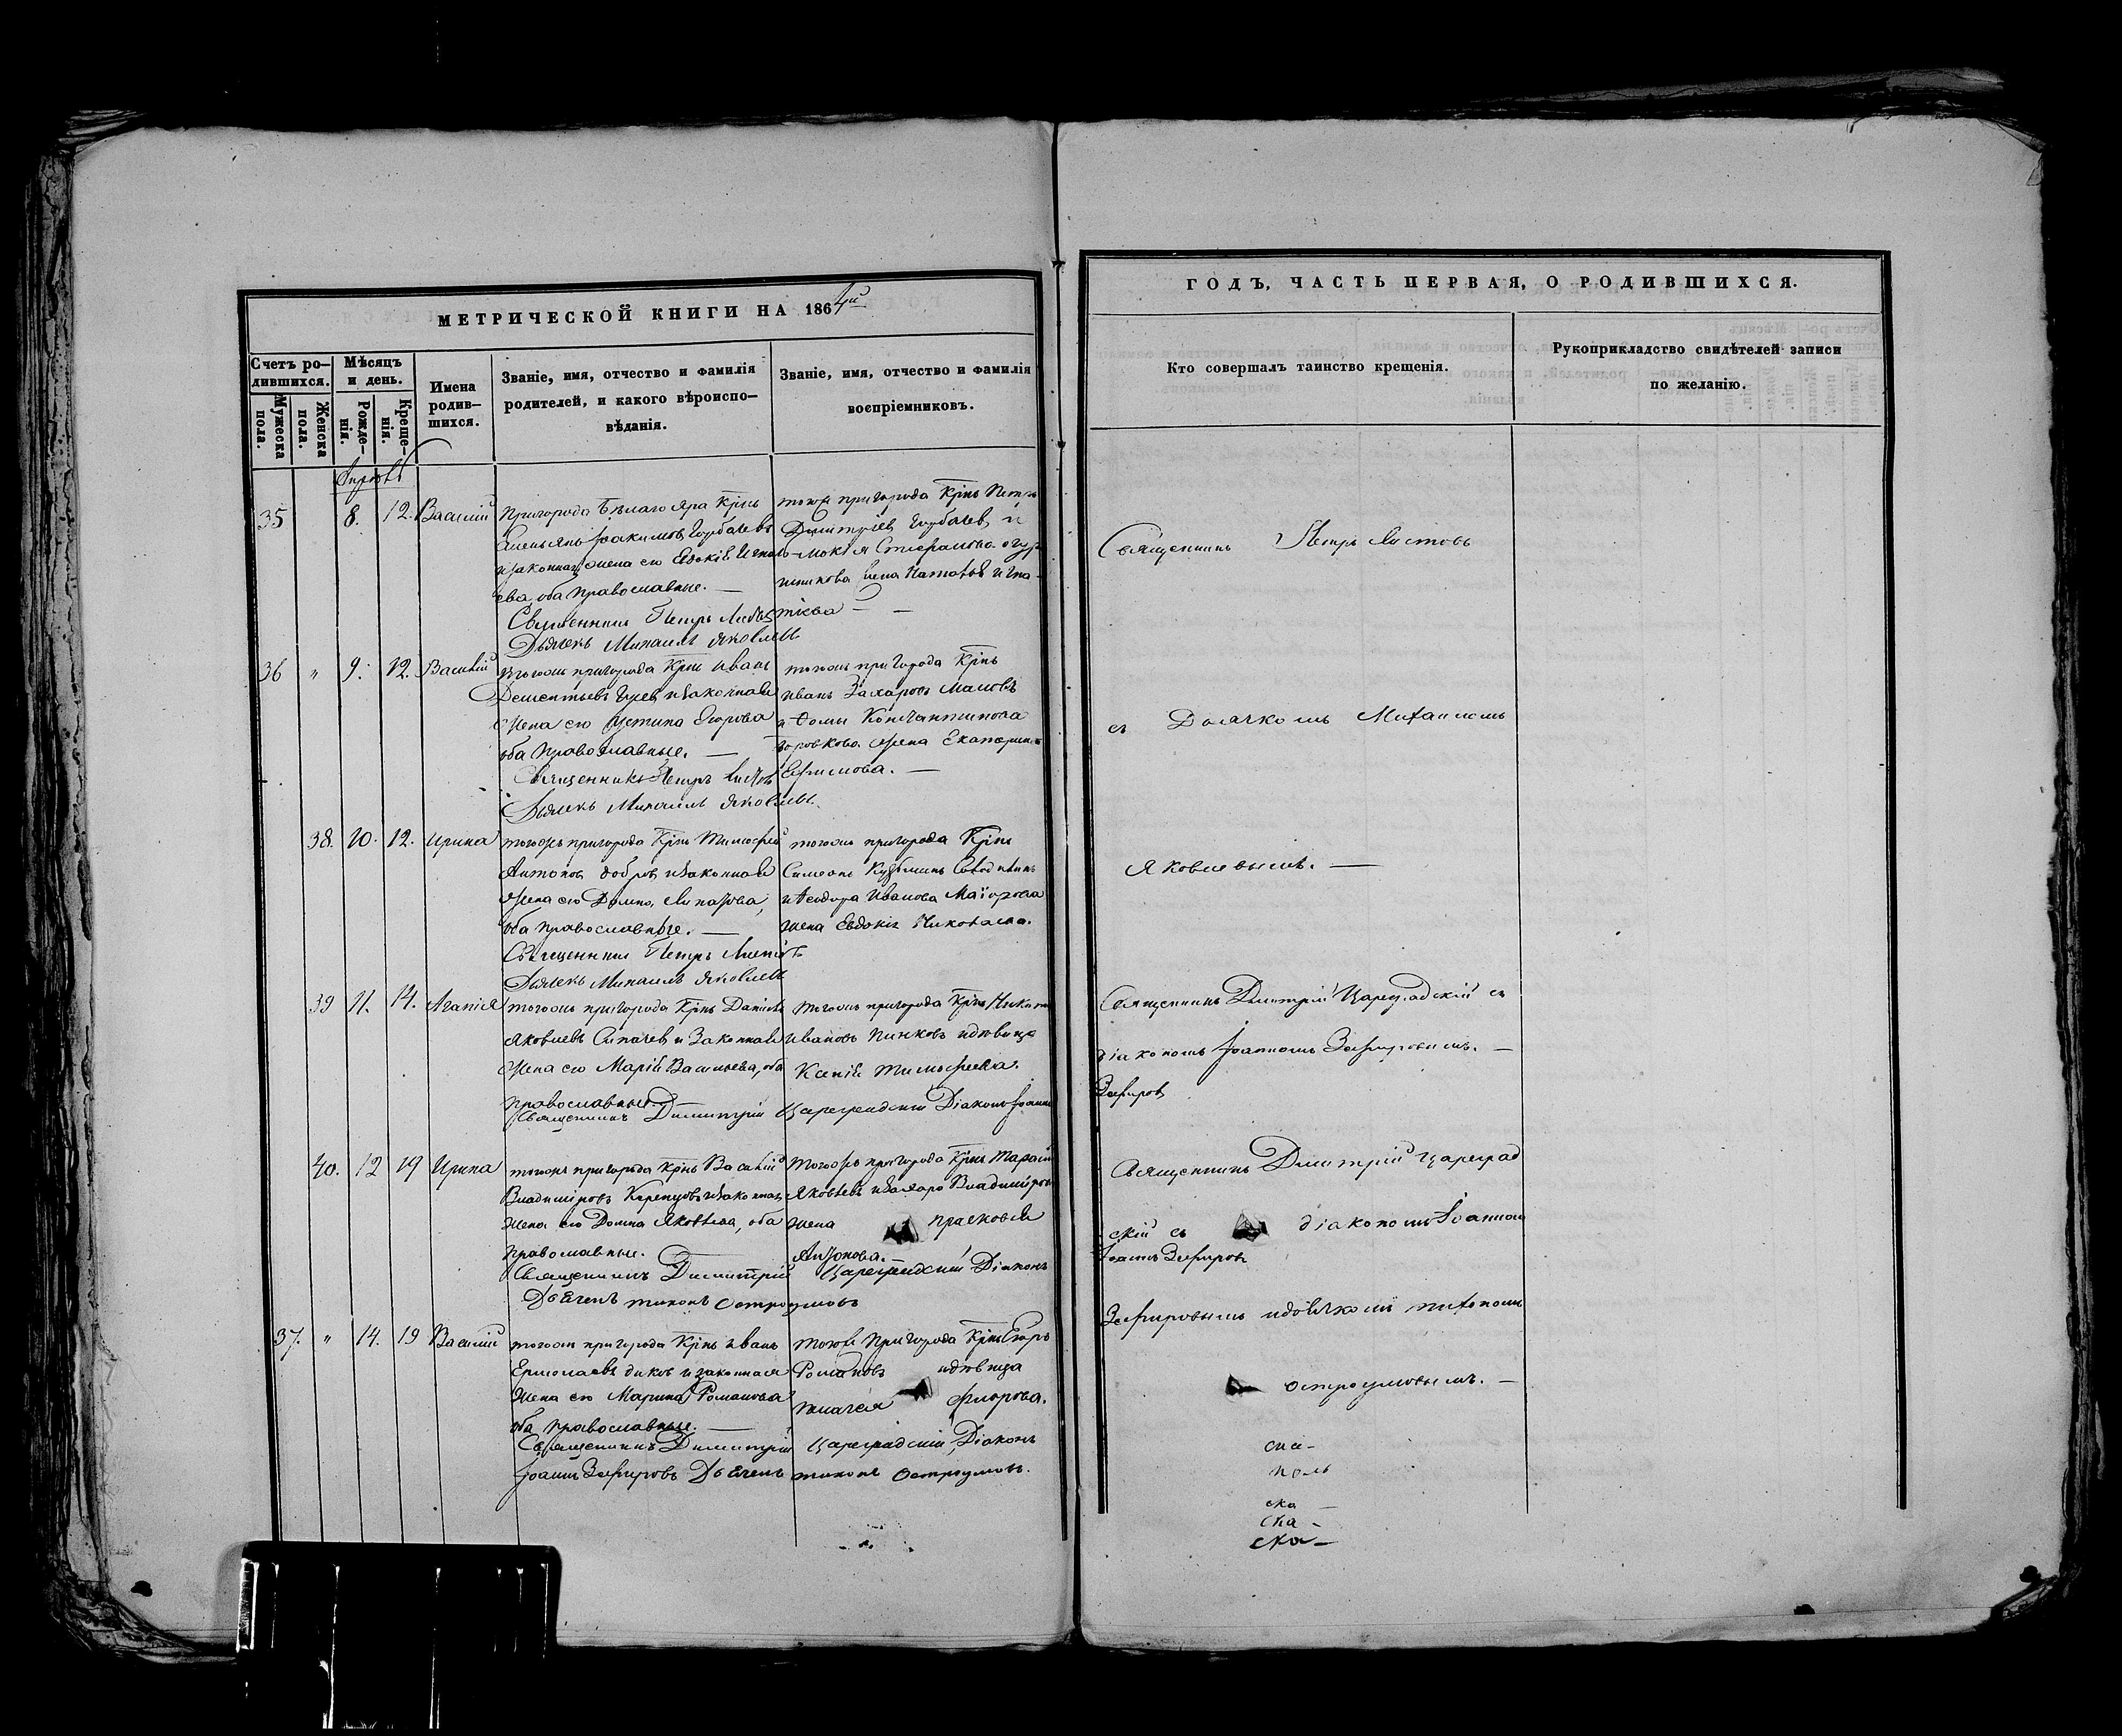 МЕТРИЧЕСКОЙ КНИГИ НА 1864й
Счетъ ро-
дившихся.
Мужеска
пола.
Женска
пола.
Мѣсяцъ
и день.
Рожде-
нія.
Креще-
нія.
Имена
родив-
шихся.
Званіе, имя, отчество и фамилія
родителей, и какого вѣроиспо-
вѣданія.
Званіе, имя, отчество и фамилія
воспріемниковъ.
35 8. 12. Василій
Пригорода Бѣлаго Яра Крнъ
Іоакимовъ Горбачевъ
и законная жена его Евдокія
ева, оба православные. —
тогоже пригорода Крнъ Петръ
Дмитріев Горбачев и
Стефанова
жена Наталья Игна-
тіева —
Священникъ Петръ Листовъ
Дьячекъ Михаилъ Яковлевъ
36 " 9. 12. Василій
тогожъ пригорода Крнъ Иванъ
Дементьевъ и законная
жена его Устина Егорова
оба православные. —
тогожъ пригорода Крнъ
Иванъ Захаровъ
и Фомы Константинова
жена Екатерина
Ефимова. —
Священникъ Петръ Листовъ
Дьячекъ Михаилъ Яковлевъ.
38. 10. 12. Ирина
тогожъ пригорода Крнъ Тимофей
Антонов и законная
жена его Домна
оба православные. —
тогожъ пригорода Крнъ
Симеонъ Кузьминъ
и Феодора Иванова Маіорова
жена Евдокія Николаева.
Священникъ Петръ Листовъ
Дьячекъ Михаилъ Яковлевъ
39 11. 14. Агапія
тогожъ пригорода Крнъ Даніилъ
Яковлевъ и законная
жена его Марія Васильева, оба
православные.
тогожъ пригорода Крнъ Никита
Ивановъ Пинковъ и дѣвица
Ксенія Тимофеева.
Священникъ Димитрій Цареградскій Діаконъ Іоаннъ
40. 12 19 Ирина
тогожъ пригорода Крнъ Василій
Владиміровъ и законная
жена его Домна Яковлева, оба
православные.
тогожъ пригорода Крнъ Тарасій
Яковлевъ и Захара Владимірова
жена Прасковья
Антонова. —
Священникъ Димитрій Цареградскій Діаконъ
Дьячекъ Тихонъ Остроумовъ
37. " 14. 19 Василій
тогожъ пригорода Крнъ Иванъ
Ермолаевъ и законная
жена его Марина Романова
оба православные. —
тогоже пригорода Крнъ Егоръ
Романовъ и дѣвица
Флорова.
Священникъ Димитрій Цареградскій, Діаконъ
Іоаннъ Зефировъ Дьячекъ Тихонъ Остроумовъ.
ГОДЪ, ЧАСТЬ ПЕРВАЯ, О РОДИВШИХСЯ.
Кто совершалъ таинство крещенія.
Рукоприкладство свидѣтелей записи
по желанію.
Священникъ Петръ Листовъ
съ Дьячкомъ Михаиломъ
Яковлевымъ. —
Священникъ Дмитрій Цареградскій съ
діакономъ Іоанномъ Зефировымъ. —
Зефиров
Священникъ Дмитрій Цареград
скій съ діакономъ Іоанномъ
Іоаннъ Зефировъ
Зефировымъ и дьячкомъ Тихономъ
Остроумовымъ. —
ска —
ска —
ска —